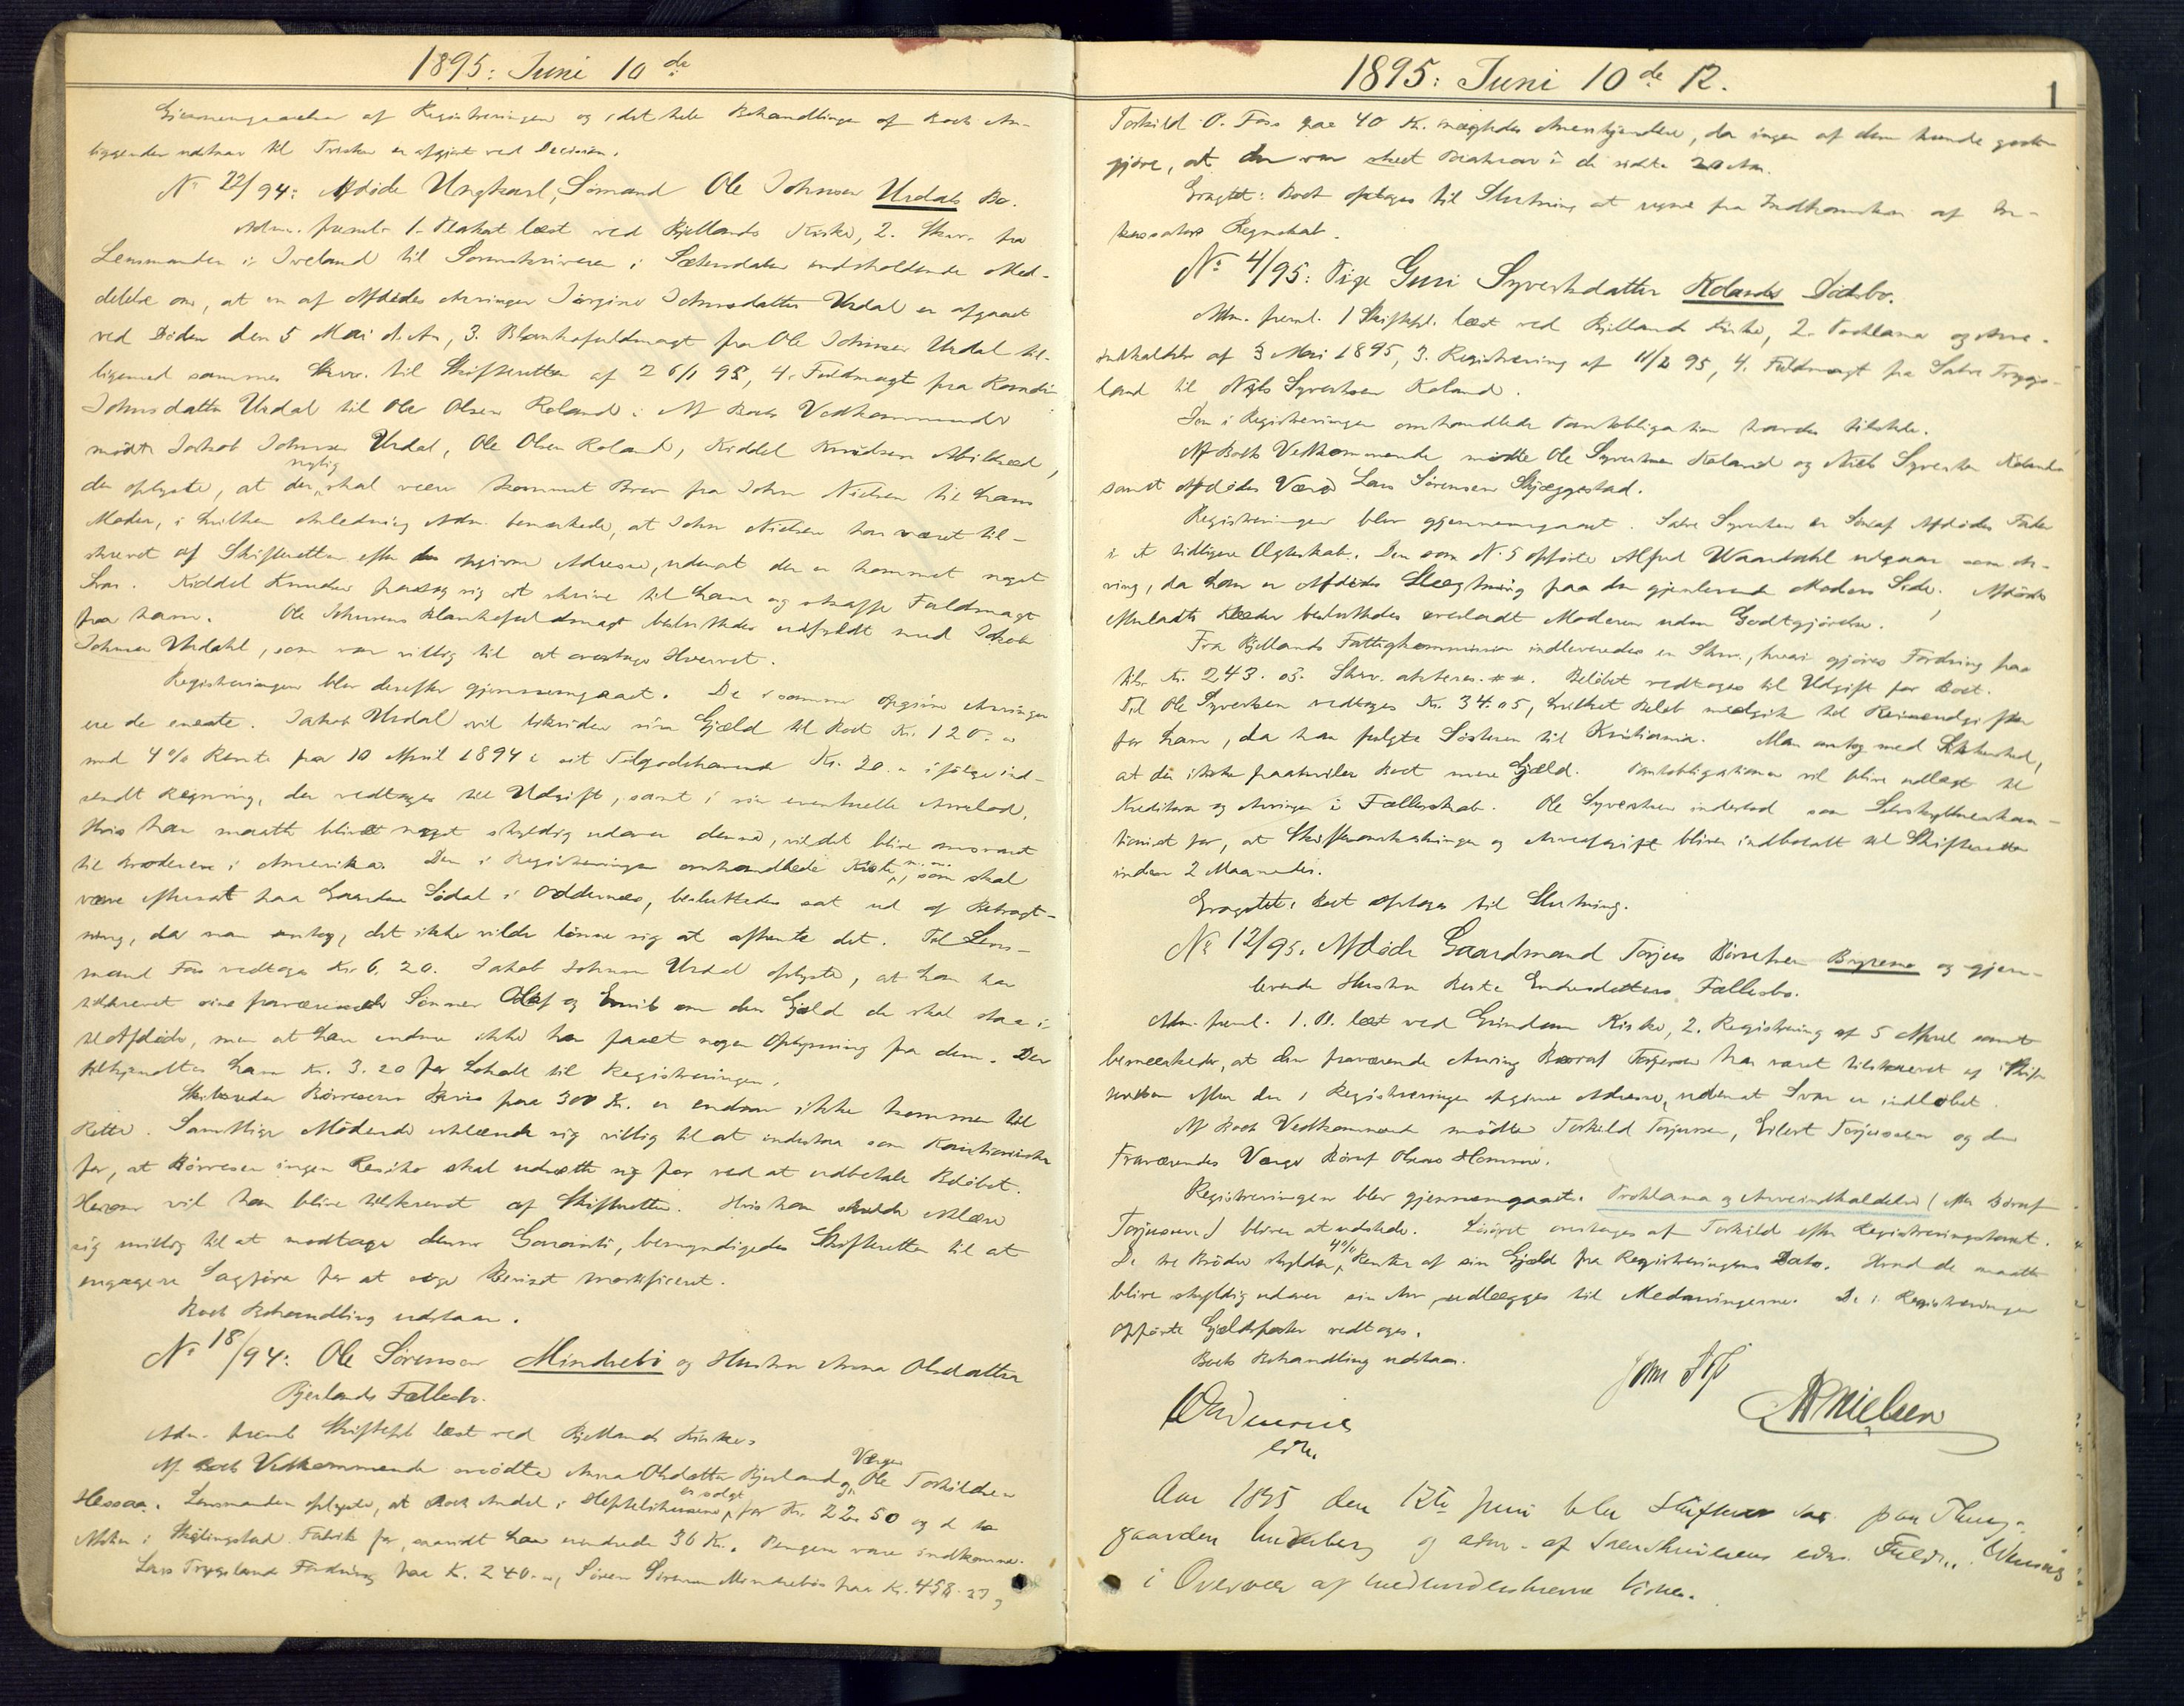 1895: Juni 10de
Gjennemgaaelse af Registreringen og i det hele Behandlingen af Boets An-
liggender udstaar til Tvisten er afgjort ved Decision.
No 22/94: Afdöde Ungkarl, Sömand Ole Johnsen Urdals Bo.
Adm. freml. 1. Plakat læst ved Bjellands Kirke, 2. Skriv. fra
Lensmanden i Iveland til Sorenskriveren i Sætersdalen indeholdende Med-
delelse om, at en af Afdödes Arvinger Jörgine Johnsdatter Urdal er afgaaet
ved Döden den 5 Mai d. A., 3. Blankofuldmagt fra Ole Johnsen Urdal til-
ligemed sammes Skriv. til Skifteretten af 26/1 95, 4. Fuldmagt fra
Johnsdatter Urdal til Ole Olsen Roland. Af Boets Vedkommende
mödte Jakob Johnsen Urdal, Ole Olsen Roland, Kiddel Knudsen
der oplyste, at der nylig skal være kommet Brev fra John Nielsen til hans
Moder, i hvilken Anledning Adm. bemærkede, at John Nielsen har været til-
skrevet af Skifteretten efter den opgivne Adresse, uden at der er kommet noget
Svar. Kiddel Knudsen paatog sig at skrive til ham og skaffe Fuldmagt
fra ham. Ole Johnsens Blankofuldmagt besluttedes udfyldt med Jakob
Johnsen Urdahl, som var villig til at overtage Hvervet.
Registreringen blev derefter gjennemgaaet. De i samme opgivne Arvinger
ere de eneste. Jakob Urdal vil likvidere sin Gjæld til Boet Kr. 120.
med 4% Rente fra 10 April 1894 i sit Tilgodehavende Kr. 20. ifölge ind-
sendt Regning, der vedtages til Udgift, samt i sin eventuelle Arvelod.
Hvis han maatte blive noget skyldig udover denne, vil det blive ansvaret
til Bröderene i Amerika. Den i Registreringen omhandlede Kiste m. m., som skal
være efterladt paa Gaarden Södal i Oddernes, besluttedes sat ud af Betragt-
ning, da man antog, det ikke vilde lönne sig at afhente det. Til Lens-
mand Foss vedtages Kr. 6.20. Jakob Johnsen Urdal oplyste, at han har
tilskrevet sine fraværende Sönner Olaf og Emil om den Gjæld de skal staa i
til Afdöde, men at han endnu ikke har faaet nogen Oplysning fra dem. Der
tilkjendtes ham Kr. 3.20 for Lokale til Registreringen.
Skibsreder Börresens Bevis paa 300 Kr. er endnu ikke kommen til
Rette. Samtlige Mödende erklærede sig villig til at indestaa som Kautionister
for, at Börresen ingen Risiko skal udsætte sig for ved at udbetale Belöbet.
Herom vil han blive tilskrevet af Skifteretten. Hvis han skulde erklære
sig uvillig til at modtage denne Garanti, bemyndigedes Skifteretten til at
engagere Sagförer for at söge Beviset mortificeret.
Boets Behandling udstaar.
No 18/94: Ole Sörensen Mindrebö og Hustru Anna Olsdatter
Bjerlands Fællesbo.
Adm. freml. Skiftepl. læst ved Bjellands Kirke.
Af Boets Vedkommende mödte Anna Olsdatter Bjerland og Værgen Ole Torkildsen
Hessaa. Lensmanden oplyste, at Boets Andel i er solgt for Kr. 22.50 og de to
Aktier i Fabrik for, saavidt han erindrede 36 Kr. Pengene vare indkomne.
Lars Tryglands Fordring paa K. 240., Sören Sörensen Mindrebös paa Kr. 458.27,
1895: Juni 10de 12.
1
Torkild O. Foss paa 40 Kr. nægtedes Anerkjendelse, da ingen af dem kunde godt-
gjöre, at der var skeet Paakrav i de sidste 20 Aar.
Eragtet: Boet optages til Slutning at regne fra Indkomsten af In-
kassators Regnskab.
No 4/95: Pige Guri Syvertsdatter Kolands Dödsbo.
Adm. freml. 1. Skiftepl. læst ved Bjellands Kirke, 2. Proklama og Arve-
indkaldelse af 3 Mai 1895, 3. Registrering af 11/2 95, 4. Fuldmagt fra Salve Trygs-
land til Niels Syvertsen Koland.
Den i Registreringen omhandlede Pantobligation havdes tilstede.
Af Boets Vedkommende mödte Ole Syvertsen Koland og Niels Syvertsen Koland
samt Afdödes Værge Lars Sörensen Skjæggestad.
Registreringen blev gjennemgaaet. Salve Syvertsen er Sön af Afdödes Fader
i et tidligere Ægteskab. Den som No 5 opförte Alfred Waardahl udgaar som Ar-
ving, da han er Afdödes Slægtning paa den gjenlevende Moders Side. Afdödes
efterladte Klæder besluttedes overladt Moderen uden Godtgjörelse.
Fra Bjellands Fattigkommission indleveredes en Skriv., hvori gjöres Fordring paa
tils. Kr. 243.03. Skriv. akteres. Belöbet vedtages til Udgift for Boet.
Til Ole Syvertsen vedtages Kr. 34.05, hvilket Belöb medgik til Reiseudgifter
for ham, da han fulgte Sösteren til Kristiania. Man antog med Sikkerhed,
at der ikke paahviler Boet mere Gjæld. Pantobligationen vil blive udlagt til
Kreditorer og Arvinger i Fællesskab. Ole Syvertsen indestod som Selvskyldnerkau-
tionist for, at Skifteomkostninger og Arveafgift bliver indbetalt til Skifteretten
inden 2 Maaneder.
Eragtet: Boet optages til Slutning.
No 12/95. Afdöde Gaardmand Torjus Börufsen Bryrens og gjen-
levende Hustru Berte Endresdatters Fællesbo.
Adm. freml. 1. Pl. læst ved Grindum Kirke, 2. Registrering af 5 April samt
bemærkede, at den fraværende Arving Böruf Torjusen har været tilskrevet af Skifte-
retten efter den i Registreringen opgivne Adresse, uden at Svar er indlöbet.
Af Boets Vedkommende mödte Torkild Torjussen, Eilert Torjussen og den
Fraværendes Værge Böruf Olsen Homme.
Registreringen blev gjennemgaaet. Proklama og Arveindkaldelse (efter Böruf
Torjusen) bliver at udstede. Lösöret overtages af Torkild efter Registreringstaxt.
De tre Brödre skylder 4% Rente af sin Gjæld fra Registreringens Dato. Hvad de maatte
blive skyldig udover sin Arv, udlægges til Medarvingerne. De i Registreringen
opförte Gjældsposter vedtages.
Boets Behandling udstaar.
edsv.
A Nielsen
Aar 1895 den 12te Juni blev Skifteret sat paa Thing-
gaarden og adm. af Sorenskriverens edsv. Fuldm.
i Overvær af undertegnede Vidner.